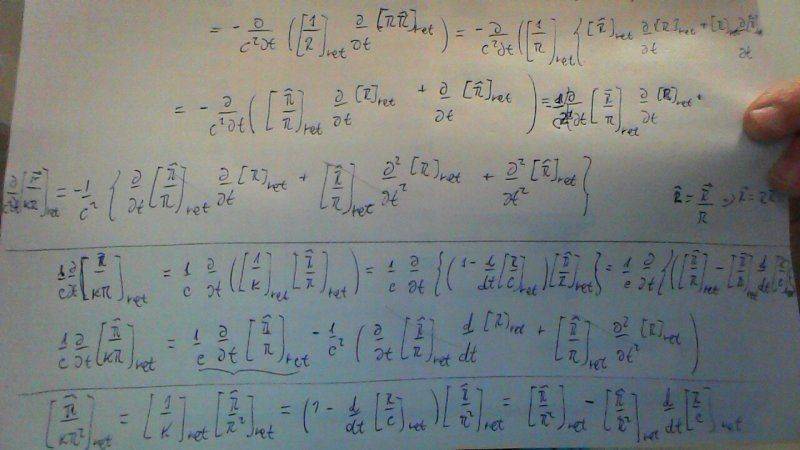 = - ∂/c²∂t ([1/r]ret ∂/∂t [r r̂]ret) = - ∂/c²∂t ([1/r]ret {[r̂]ret ∂[r]ret/∂t + [r]ret ∂[r̂]ret/∂t
= - ∂/c²∂t ([r̂/r]ret ∂/∂t [r]ret + ∂/∂t [r̂]ret) = ∂/∂t [r̂/r]ret ∂/∂t [r]ret +
∂/c∂t [r̂/κr]ret = -1/c² { ∂/∂t [r̂/r]ret ∂/∂t [r]ret + [r̂/r]ret ∂²/∂t² [r]ret + ∂²/∂t² [r̂]ret }
r̂ = r⃗/r ⇒ r⃗ = r r̂
1/c ∂/∂t [r̂/κr]ret = 1/c ∂/∂t ([1/κ]ret [r̂/r]ret) = 1/c ∂/∂t {(1 - d/dt [r/c]ret) [r̂/r]ret} = 1/c ∂/∂t {([r̂/r]ret - [r̂/r]ret d/dt [r/c]ret
1/c ∂/∂t [r̂/κr]ret = 1/c ∂/∂t [r̂/r]ret - 1/c² (∂/∂t [r̂/r]ret d/dt [r]ret + [r̂/r]ret ∂²/∂t² [r]ret)
[r̂/κr²]ret = [1/κ]ret [r̂/r²]ret = (1 - d/dt [r/c]ret) [r̂/r²]ret = [r̂/r²]ret - [r̂/r²]ret d/dt [r/c]ret